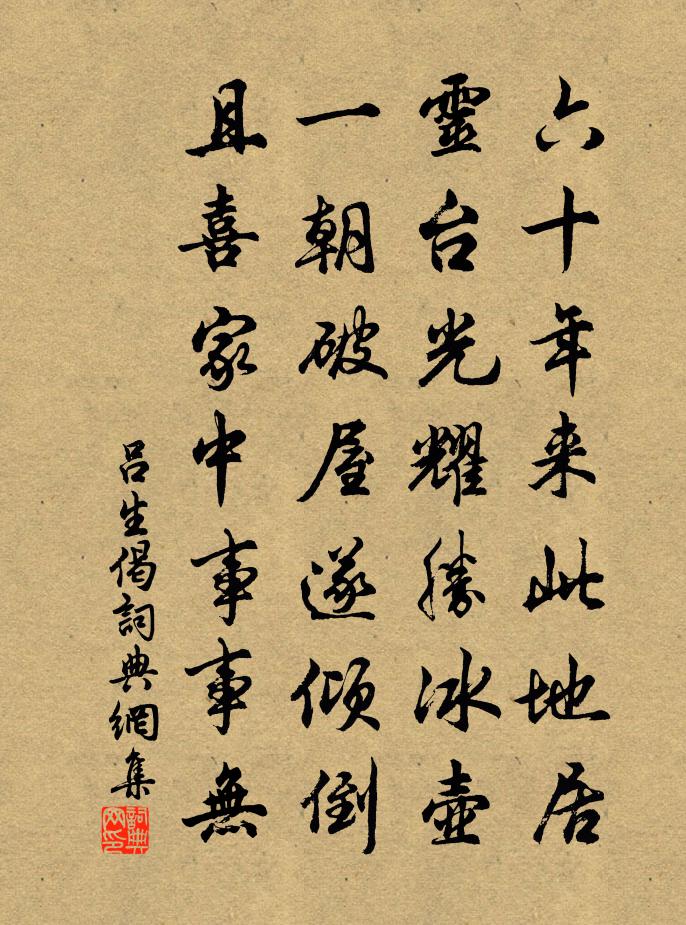 六十年来此地居
靈台光耀勝冰壺
一朝破屋遂傾倒
且喜家中事事無
吕生偈詞典網集
詞典网印